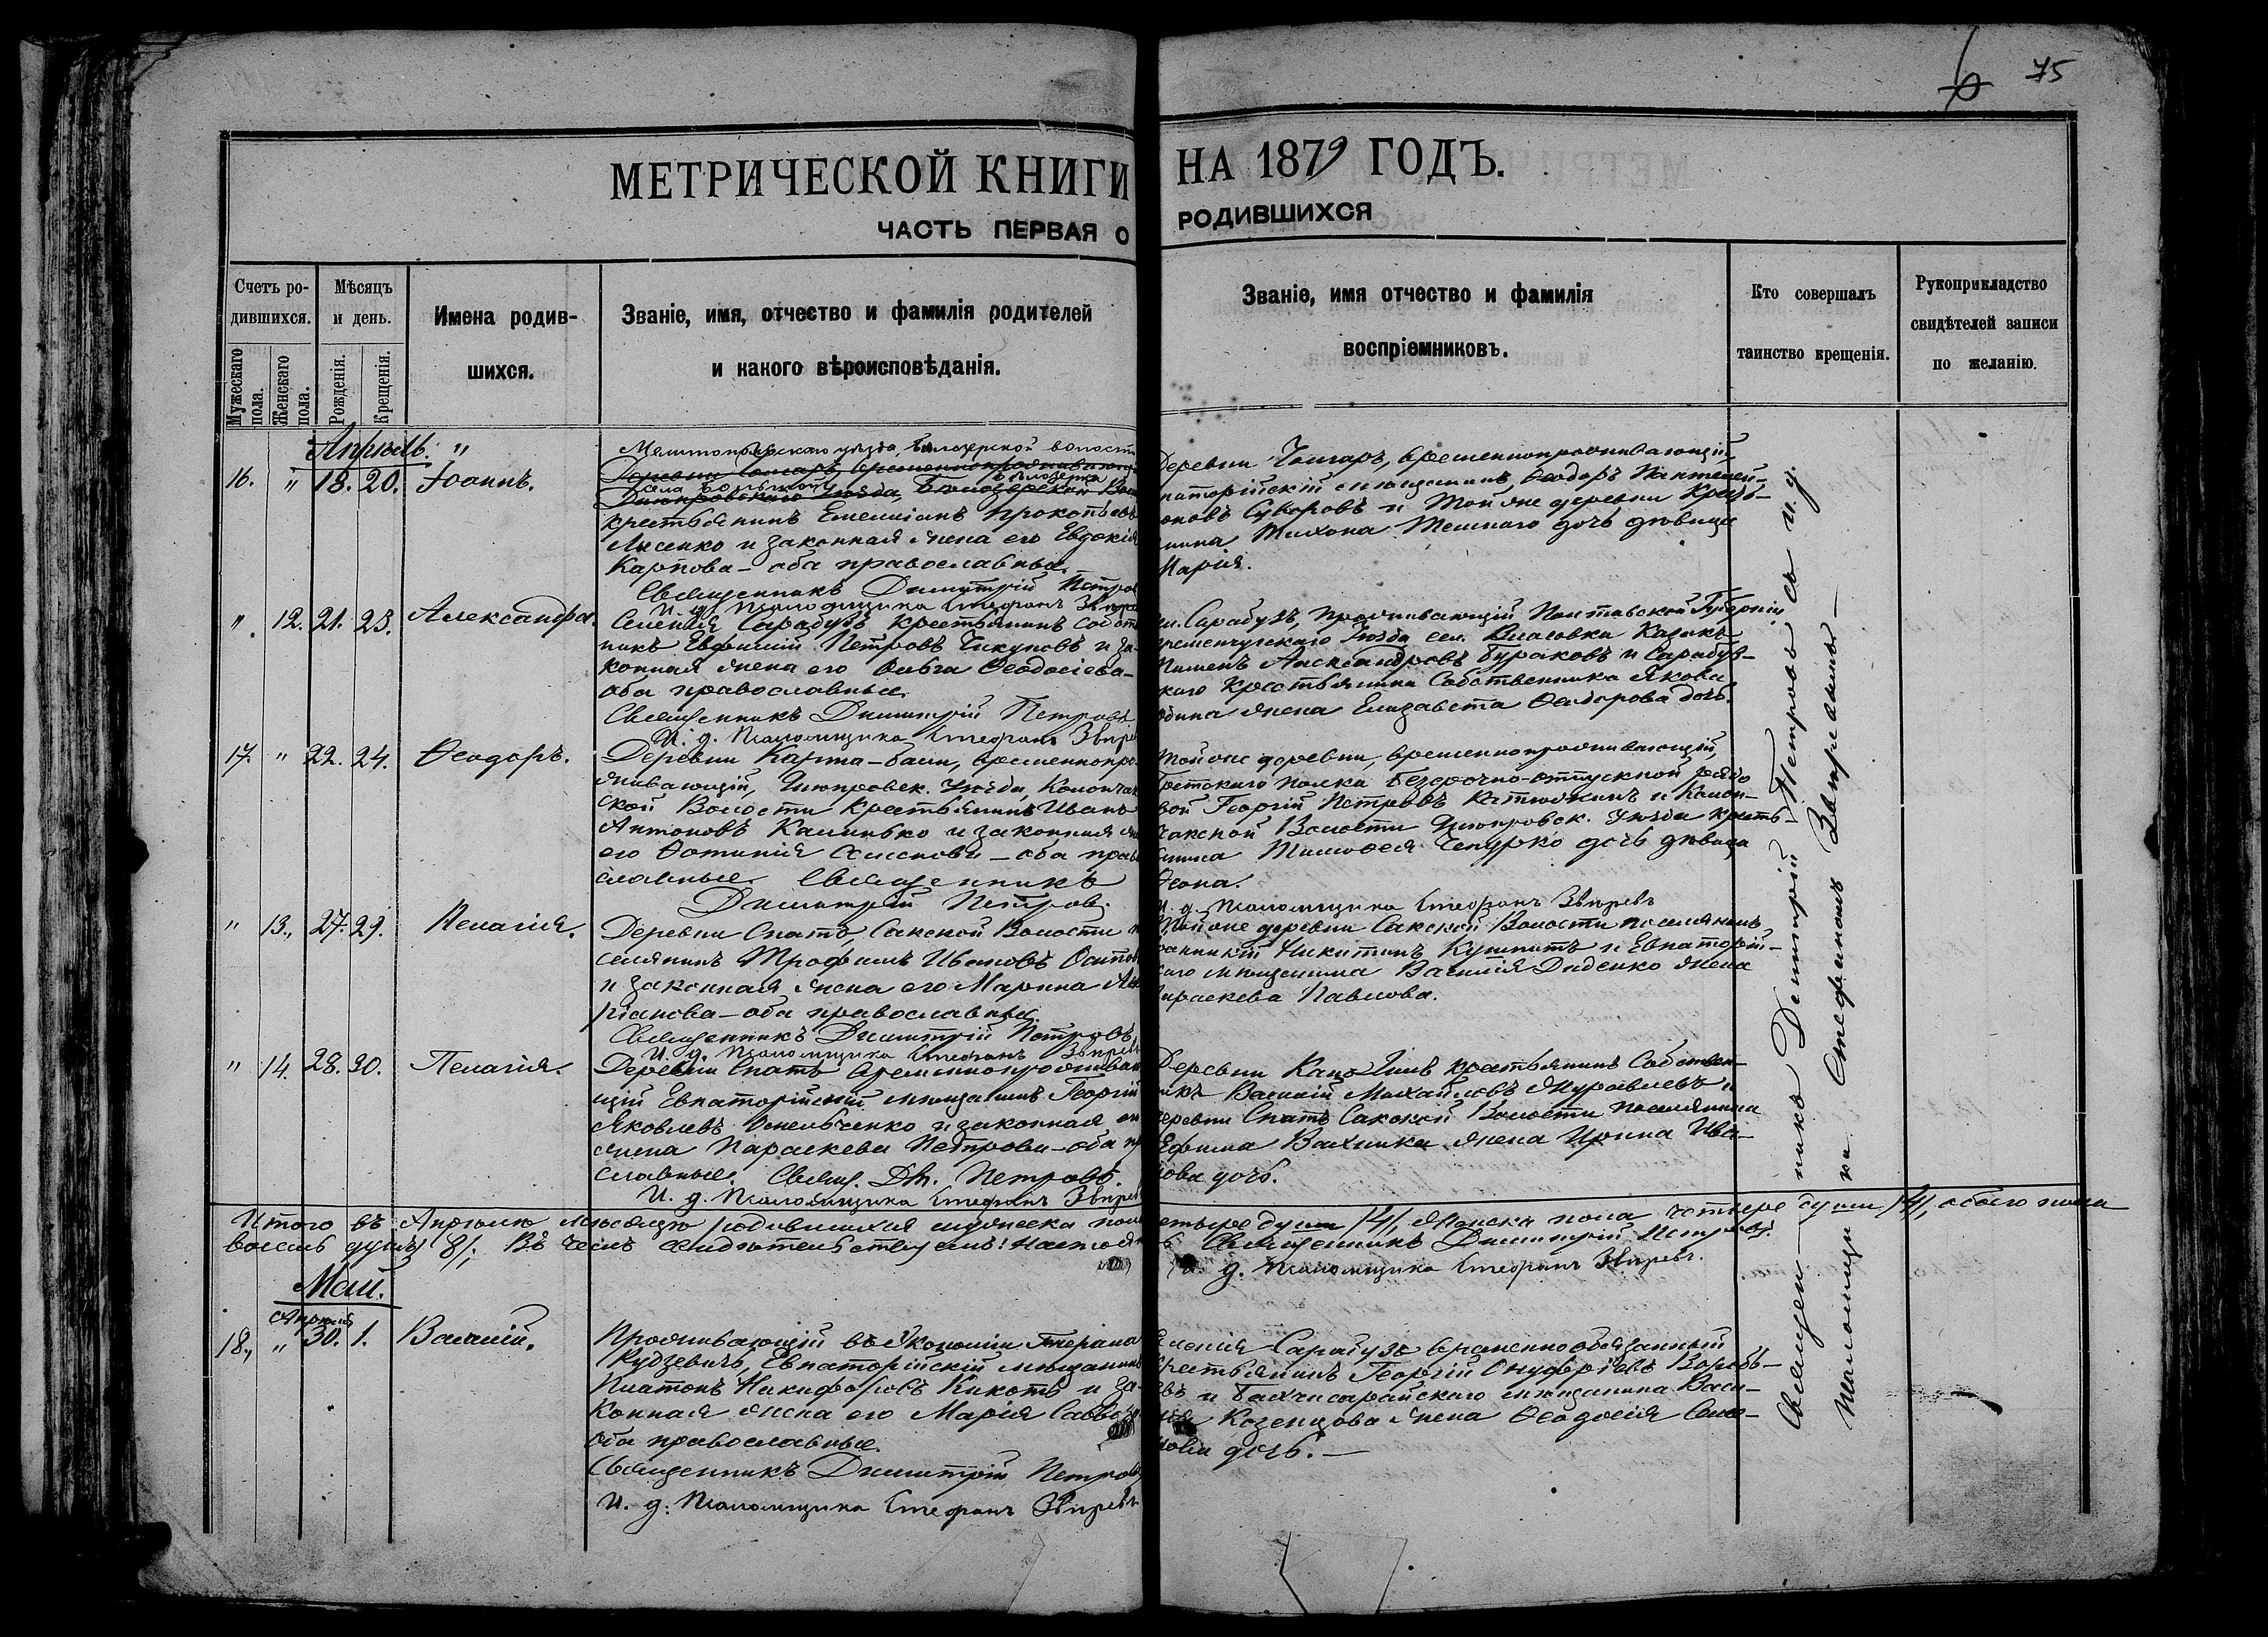 75
МЕТРИЧЕСКОЙ КНИГИ НА 1879 ГОДЪ.
ЧАСТЬ ПЕРВАЯ О РОДИВШИХСЯ
Счетъ ро-
дившихся.
Мужескаго
пола.
Женскаго
пола.
Мѣсяцъ
и день.
Рожденія.
Крещенія.
Имена родив-
шихся.
Званіе, имя, отчество и фамилія родителей
и какого вѣроисповѣданія.
Званіе, имя отчество и фамилія
воспріемниковъ.
Кто совершалъ
таинство крещенія.
Рукоприкладство
свидѣтелей записи
по желанію.
Апрѣль. "
16. " 18. 20. Іоаннъ.
Мелитопольскаго уѣзда, волости
крестьянинъ Емеліанъ Прокопьевъ
Лисенко и законная жена его Евдокія
Карпова – оба православные.
Священникъ Димитрій Петров
И. д. Псаломщика Стефанъ Звѣре
Деревни Чонгаръ, временнопроживающій
Суворовъ и той же деревни
Тихона дочь дѣвица
Марія.
" 12. 21. 23. Александра.
Селенія Сарабузъ крестьянинъ Собст
никъ Евфимій Петровъ Чикуновъ и за-
конная жена его Ольга Ѳеодосіева –
оба православные.
Священникъ Димитрій Петровъ
И. д. Псаломщика Стефанъ Звѣре
Сарабузъ, проживающій Полтавской Губерніи
Кременчугскаго Уѣзда сел. Власовка Казакъ
Пименъ Александровъ Бураковъ и Сарабуз-
скаго крестьянина Собственника Якова
жена Елизавета Ѳеодорова дочь.
17. " 22. 24. Ѳеодоръ.
Деревни временнопро-
живающій, Днѣпровск. Уѣзда, Колончак
ской Волости крестьянинъ Иванъ
Антоновъ Калинько и законная же
его Фотинія – оба прав
славные. Священникъ
Димитрій Петровъ.
той же деревни, временнопроживающій,
полка безсрочно-отпускной рядо
вой Георгій Петровъ и Колон-
чакской Волости Днѣпровск. Уѣзда кресть-
янина Тимоѳея Чепурко дочь дѣвица
И. д. Псаломщика Стефанъ Звѣревъ
" 13. 27. 29. Пелагія.
Деревни Спатъ, Сакской Волости
селянинъ Трофимъ Ивановъ Осипов
и законная жена его Марина
– оба православные.
Священникъ Димитрій Петровъ
И. д. Псаломщика Стефанъ Звѣрев
Той же деревни Сакской Волости поселянинъ
Никитинъ и Евпаторій-
скаго мѣщанина Василія Диденко жена
Параскева Павлова.
" 14. 28. 30. Пелагія.
Деревни Спатъ временнопрожива
щій Евпаторійскій мѣщанинъ Георгій
Яковлевъ и законная его
жена Параскева Петрова – оба пр
славные. Свящ. Дм. Петровъ.
И. д. Псаломщика Стефанъ Звѣрев
Деревни крестьянинъ Собствен-
никъ Василій Михайловъ Журавлевъ и
деревни Спатъ Сакской Волости поселянина
Ефима жена Ирина Ива-
нова дочь.
Итого въ Апрѣлѣ мѣсяцѣ родившихся мужеска пола четыре души /4/, женска пола четыре души /4/, обоего пола
восемь душъ /8/; Въ чемъ свидѣтельствуемъ: Священникъ Димитрій Петровъ.
И. д. Псаломщика Стефанъ Звѣревъ.
Май.
Апрѣля
18. " 30. 1. Василій.
Проживающій въ Экономіи Генерала
Рудзевичъ, Евпаторійскій мѣщанинъ
Платонъ Никифоровъ Кикоть и за-
конная жена его Марія Савво
оба православные.
Священникъ Димитрій Петров
И. д. Псаломщика Стефанъ Звѣревъ
Селенія Сарабузъ временнообязанный
крестьянинъ Георгій Онуфріевъ Воробь-
евъ и Бахчисарайскаго мѣщанина Васи-
лія Козенцова жена Ѳеодосія
дочь. —
Священникъ Димитрій Петровъ съ и. д.
Псаломщика Стефаномъ Звѣревымъ –